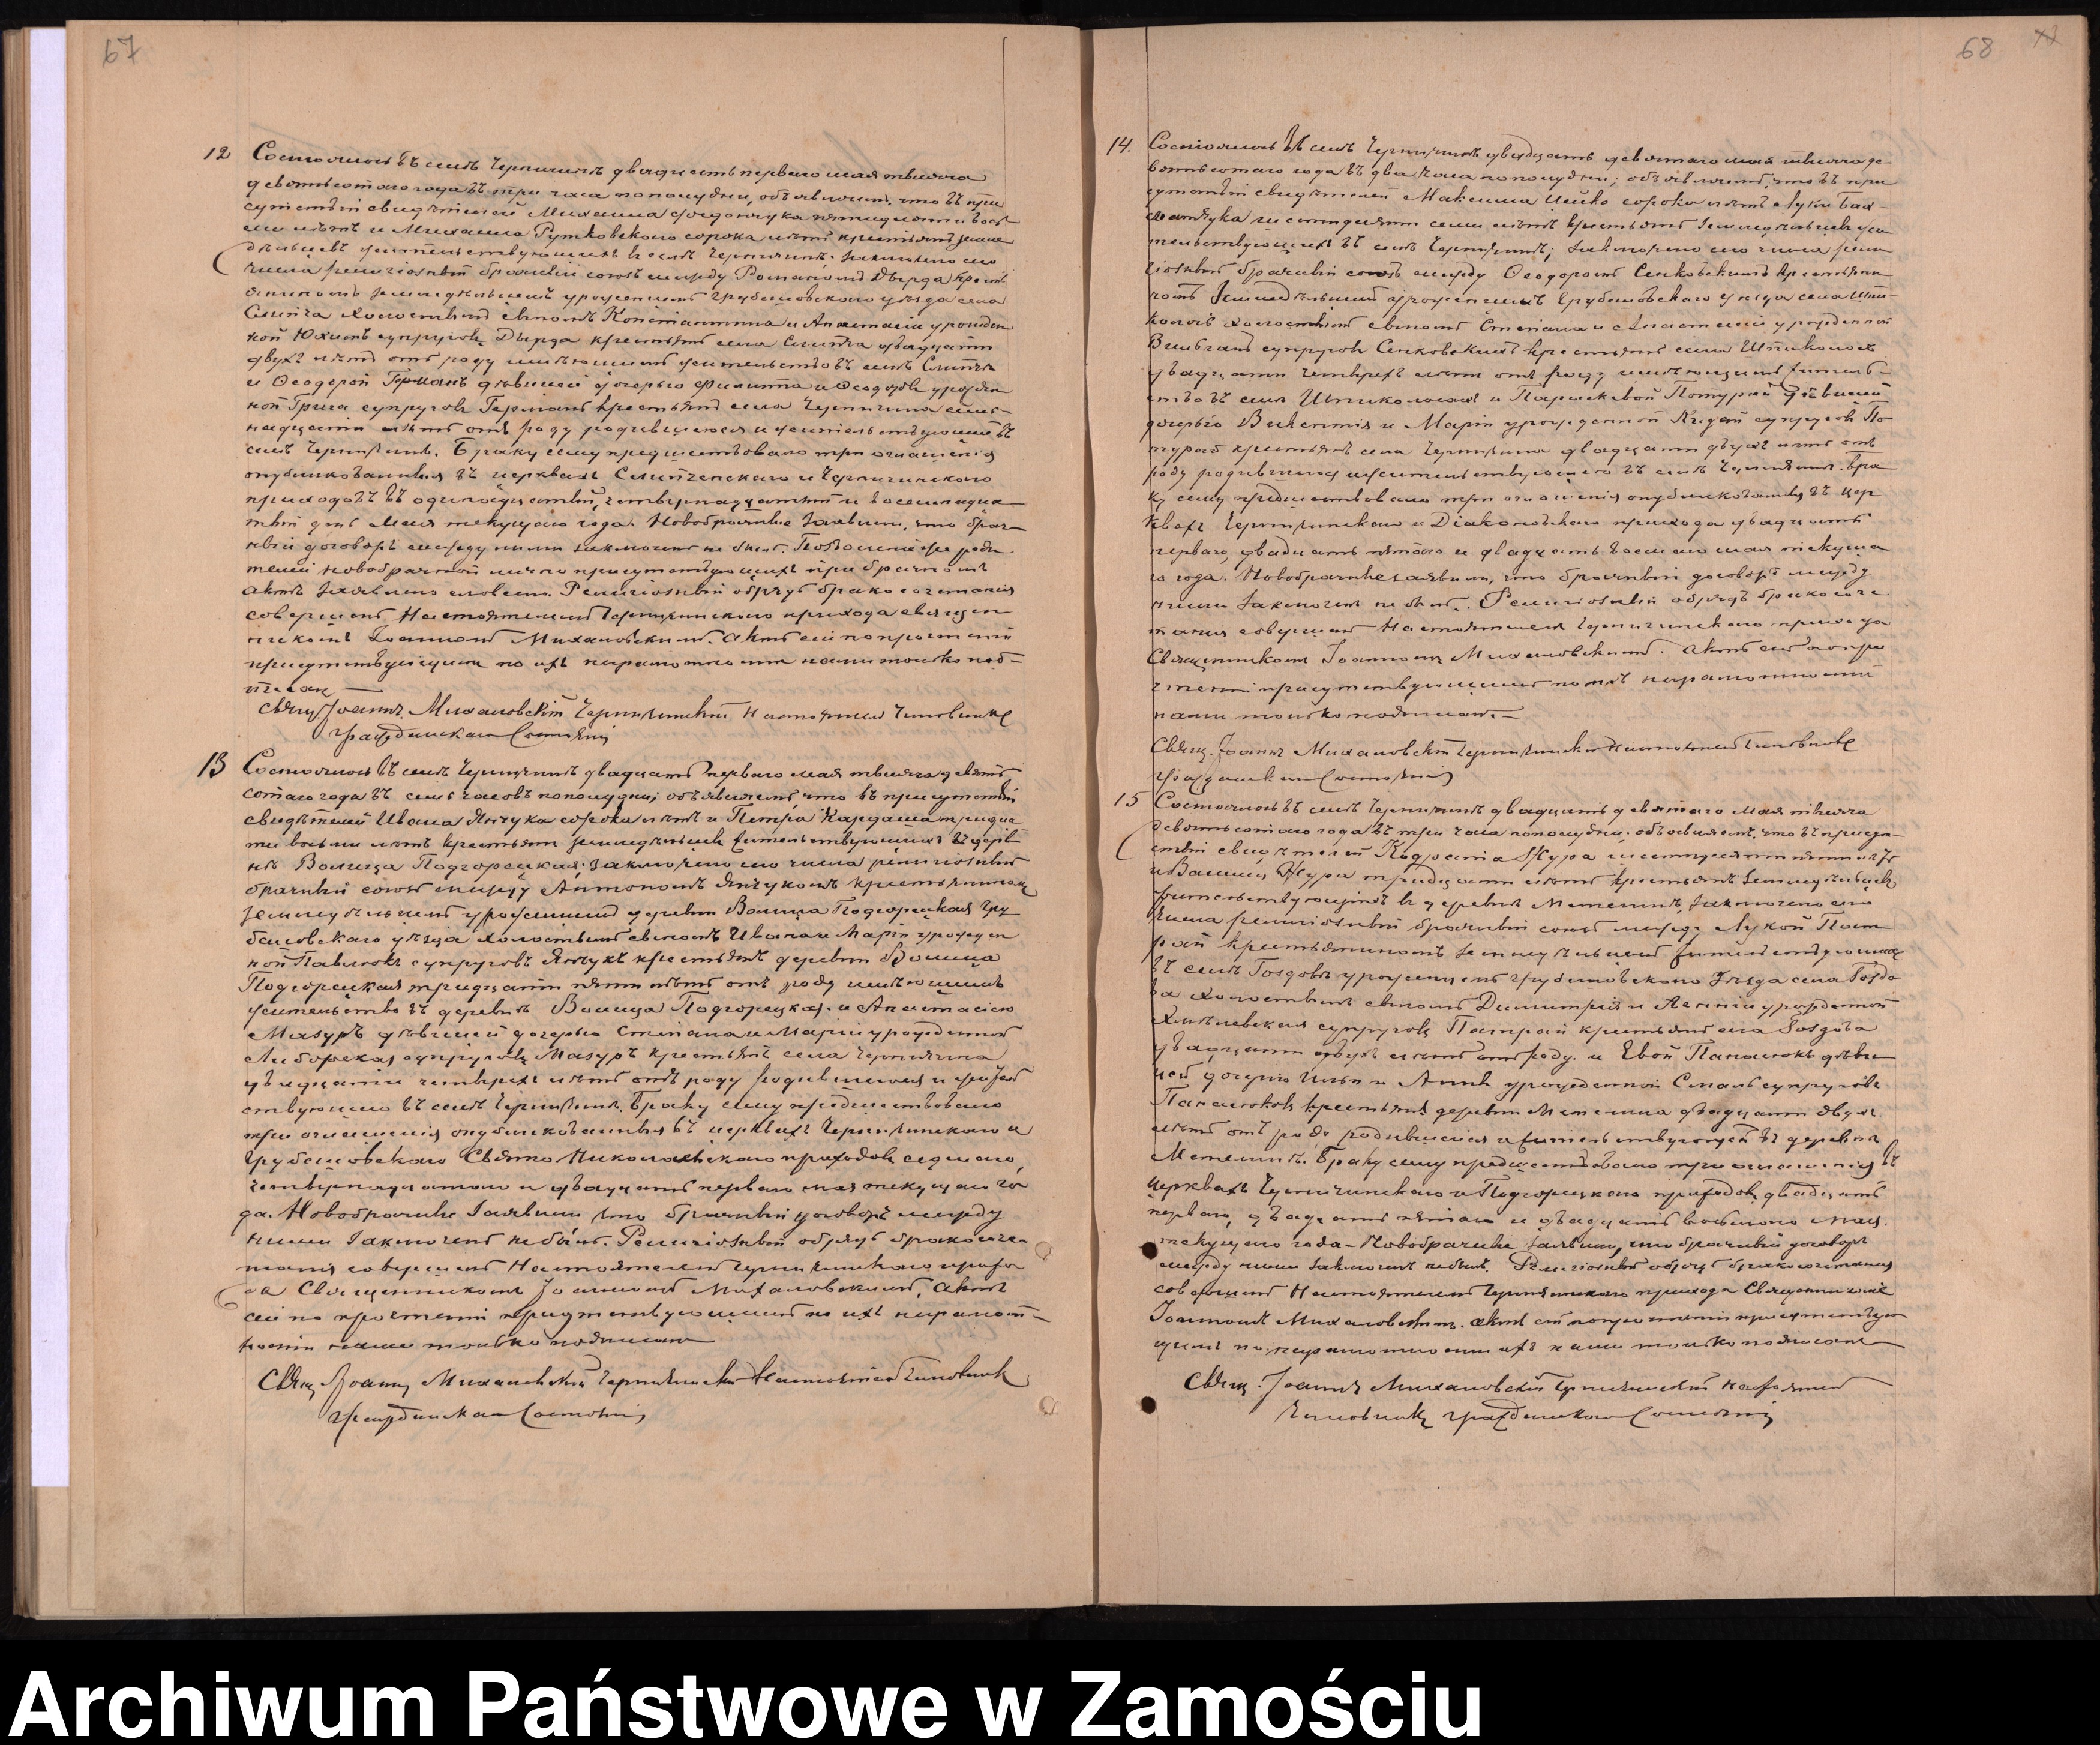 67
12 Состоялось въ селѣ Черничинѣ двадцать перваго мая тысяча
девятьсотаго года въ три часа по полудни, объявляемъ, что въ при
сутствіи свидѣтелей Михаила пятидесяти вось
ми лѣтъ и Михаила Рутковскаго сорока лѣтъ крестьянъ земле
дѣльцевъ жительствующихъ въ селѣ Черничинѣ; заключено сего
числа религіозный брачный союзъ между Романомъ Дырда крест
яниномъ земледѣльцемъ уроженцемъ Грубешовскаго уѣзда села
Слипча холостымъ сыномъ Константина и Анастасіи урожден
ной Юхимъ супруговъ Дырда крестьянъ села Слипча двадцати
двухъ лѣтъ отъ роду имѣющимъ жительство въ селѣ Слипчѣ
и Ѳеодорой Германъ дѣвицей дочерью Филиппа и Ѳеодоры урожден
ной Грыга супруговъ Германъ крестьянъ села Черничина сем-
надцати лѣтъ отъ роду родившеюся и жительствующей въ
селѣ Черничинѣ. Браку сему предшествовало три оглашенія
опубликованныя въ церквахъ Слипченскаго и Черничинскаго
приходовъ въ одинадцатый, четвернадцатый и восемнадца
тый день Мая текущаго года. Новобрачные заявили, что брач-
ный договоръ между ними заключенъ не былъ. Позволеніе роди
телей новобрачной лично присутствующихъ при брачномъ
актѣ заявлено словесно. Религіозный обрядъ бракосочетанія
совершенъ Настоятелемъ Черничинскаго прихода священ
никомъ Іоанномъ Михаловскимъ. Актъ сей по прочтеніи
присутствующимъ по ихъ неграмотности нами только под-
писанъ
Свящ. Іоаннъ Михаловскій Черничинскій Настоятель Чиновникъ
Гражданскаго Состоянія
13 Состоялось въ селѣ Черничинѣ двадцать перваго мая тысяча девять
сотаго года въ семь часовъ по полудни; объявляемъ, что въ присутствіи
свидѣтелей Ивана Янчука сорока лѣтъ и Петра Кардаша тридца
ти восьми лѣтъ крестьянъ земледѣльцевъ жительствующихъ въ дерев
нѣ Волица Подгорецкая; заключено сего числа религіозный
брачный союзъ между Антономъ Янчукомъ крестьяниномъ
земледѣльцемъ уроженцемъ деревни Волица Подгорецкая Гру
бешовскаго уѣзда холостымъ сыномъ Ивана и Маріи урожден
ной Павлюкъ супруговъ Янчукъ крестьянъ деревни Волица
Подгорецкая тридцати пяти лѣтъ отъ роду имѣющимъ
жительство въ деревнѣ Волица Подгорецкая и Анастасіею
Мазуръ дѣвицей дочерью Степана и Маріи урожденной
супруговъ Мазуръ крестьянъ села Черничина
двадцати четырехъ лѣтъ отъ роду родившеюся и житель
ствующею въ селѣ Черничинѣ. Браку сему предшествовало
три оглашенія опубликованныя въ церквахъ Черничинскаго и
Грубешовскаго Свято Николаевскаго приходовъ седьмаго,
четвернадцатаго и двадцать перваго мая текущаго го
да. Новобрачные заявили что брачный договоръ между
ними заключенъ не былъ. Религіозный обрядъ бракосоче
танія совершенъ Настоятелемъ Черничинскаго прихо
да Священникомъ Іоанномъ Михаловскимъ. Актъ
сей по прочтеніи присутствующимъ по ихъ неграмот-
ности нами только подписанъ
Свящ. Іоаннъ Михаловскій Черничинскій Настоятель Чиновникъ
Гражданскаго Состоянія
68
14. Состоялось въ селѣ Черничинѣ двадцать девятаго мая тысяча де-
вятьсотаго года въ два часа по полудни; объявляемъ, что въ при
сутствіи свидѣтелей Максима Шейко сорока лѣтъ и Луки
шестидесяти семи лѣтъ крестьянъ земледѣльцевъ жи
тельствующихъ въ селѣ Черничинѣ; заключено сего числа рели
гіозный брачный союзъ между Ѳеодоромъ Сенковскимъ крестьяни
номъ земледѣльцемъ уроженцемъ Грубешовскаго уѣзда села Шпи
колосъ холостымъ сыномъ Степана и Анастасіи урожденной
супруговъ Сенковскихъ крестьянъ села Шпиколосъ
двадцати четырехъ лѣтъ отъ роду имѣющимъ житель-
ство въ селѣ Шпиколосахъ и Параскевой Потурай дѣвицей
дочерью Викентія и Маріи урожденной супруговъ По
турай крестьянъ села Черничина двадцати двухъ лѣтъ отъ
роду родившеюся и жительствующею въ селѣ Черничинѣ. Бра
ку сему предшествовало три оглашенія опубликованныя въ цер
квахъ Черничинскаго и Діаконовскаго прихода двадцать
перваго, двадцать пятаго и двадцать восьмаго мая текуща
го года. Новобрачные заявили, что брачный договоръ между
ними заключенъ не былъ. Религіозный обрядъ бракосоче
танія совершенъ Настоятелемъ Черничинскаго прихода
Священникомъ Іоанномъ Михаловскимъ. Актъ сей по про
чтеніи присутствующимъ по ихъ неграмотности
нами только подписанъ.
Свящ. Іоаннъ Михаловскій Черничинскій Настоятель Чиновникъ
Гражданскаго Состоянія
15 Состоялось въ селѣ Черничинѣ двадцать девятаго мая тысяча
девятьсотаго года въ три часа по полудни; объявляемъ, что въ присут-
ствіи свидѣтелей Кодратія Жура шестидесяти пяти лѣтъ
и Василія Жура тридцати лѣтъ крестьянъ земледѣльцевъ
жительствующихъ въ деревнѣ Метелинѣ, заключено сего
числа религіозный брачный союзъ между Лукой Пат
рай крестьяниномъ земледѣльцемъ жительствующимъ
въ селѣ Гоздовѣ уроженцемъ Грубешовскаго уѣзда села Гоздо
ва холостымъ сыномъ Димитрія и урожденной
супруговъ Патрай крестьянъ села Гоздова
двадцати двухъ лѣтъ отъ роду и Евой Панасюкъ дѣви
цей дочерью Ильи и Анны урожденной Смаль супруговъ
Панасюковъ крестьянъ деревни Метелина двадцати двухъ
лѣтъ отъ роду родившеюся и жительствующей въ деревнѣ
Метелинѣ. Браку сему предшествовало три оглашенія въ
церквахъ Черничинскаго и Подгорецкаго приходовъ двадцать
перваго, двадцать пятаго и двадцать восьмаго мая
текущаго года. Новобрачные заявили, что брачный договоръ
между ними заключенъ не былъ. Религіозный обрядъ бракосочетанія
совершенъ Настоятелемъ Черничинскаго прихода Священникомъ
Іоанномъ Михаловскимъ. Актъ сей по прочтеніи присутствую
щимъ по неграмотности ихъ нами только подписанъ
Свящ. Іоаннъ Михаловскій Черничинскій Настоятель
Чиновникъ Гражданскаго Состоянія
Archiwum Państwowe w Zamościu